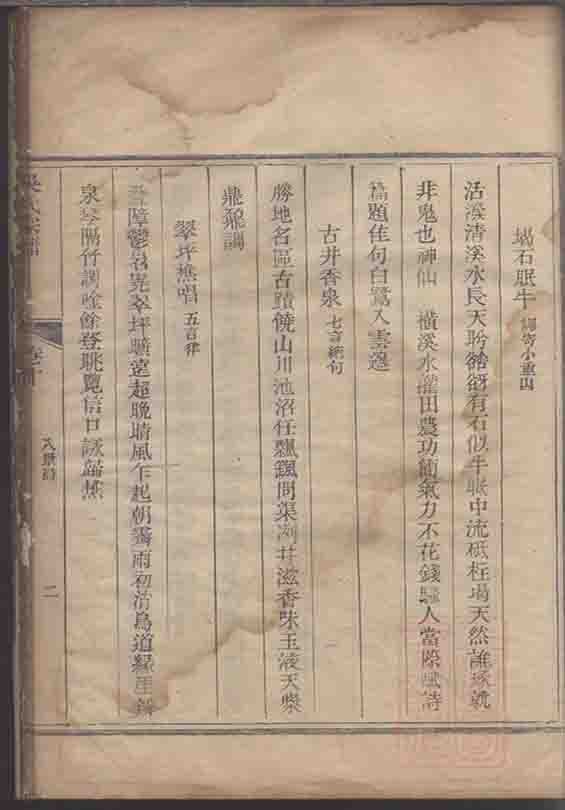 堨石眠牛 調寄小重山
活溪清溪水長天聆谽谺有石似牛眠中流砥柱堨天然誰琢就
非鬼也神仙 橫溪水灌田農功節氣力不花錢騷人當際賦詩
篇題佳句白鷺入雲邊
古井香泉 七言絕句
勝地名區古蹟饒山川池沼任飄飄問渠冽井滋香味玉液天漿
鼎飛調
翠坪樵唱 五言律
障鬱翠坪曠遠超晚晴風乍起朝霽雨初消鳥道緣
泉琴隔竹調唫餘登眺覽信口詠歸樵
八景詩 二